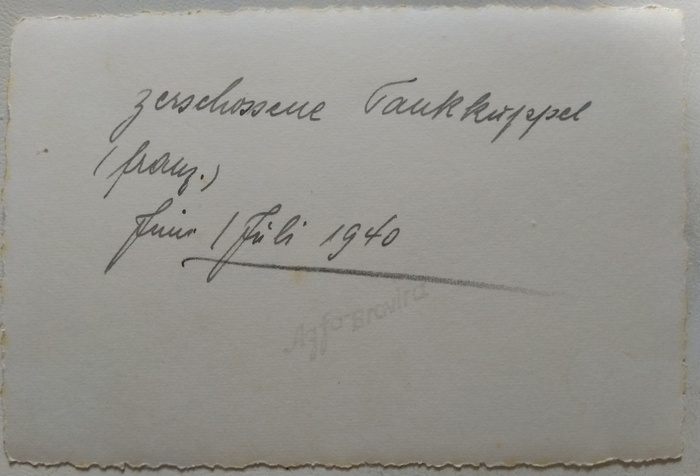 zerschossene Tankkuppel
(franz.)
Juni / Juli 1940
Agfa-Brovira